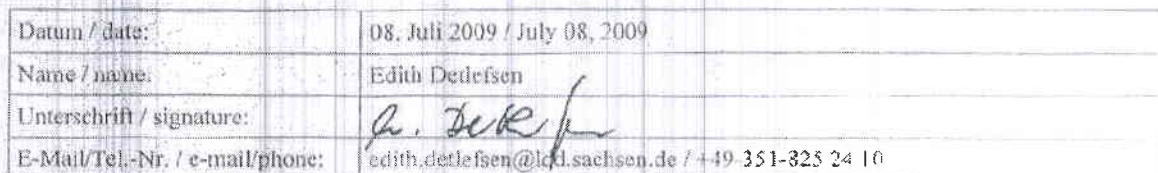 Datum / date: 08. Juli 2009 / July 08, 2009
Name / name: Edith Detlefsen
Unterschrift / signature:
E-Mail/Tel.-Nr. / e-mail/phone: edith.detlefsen@ldd.sachsen.de / +49-351-825 24 10